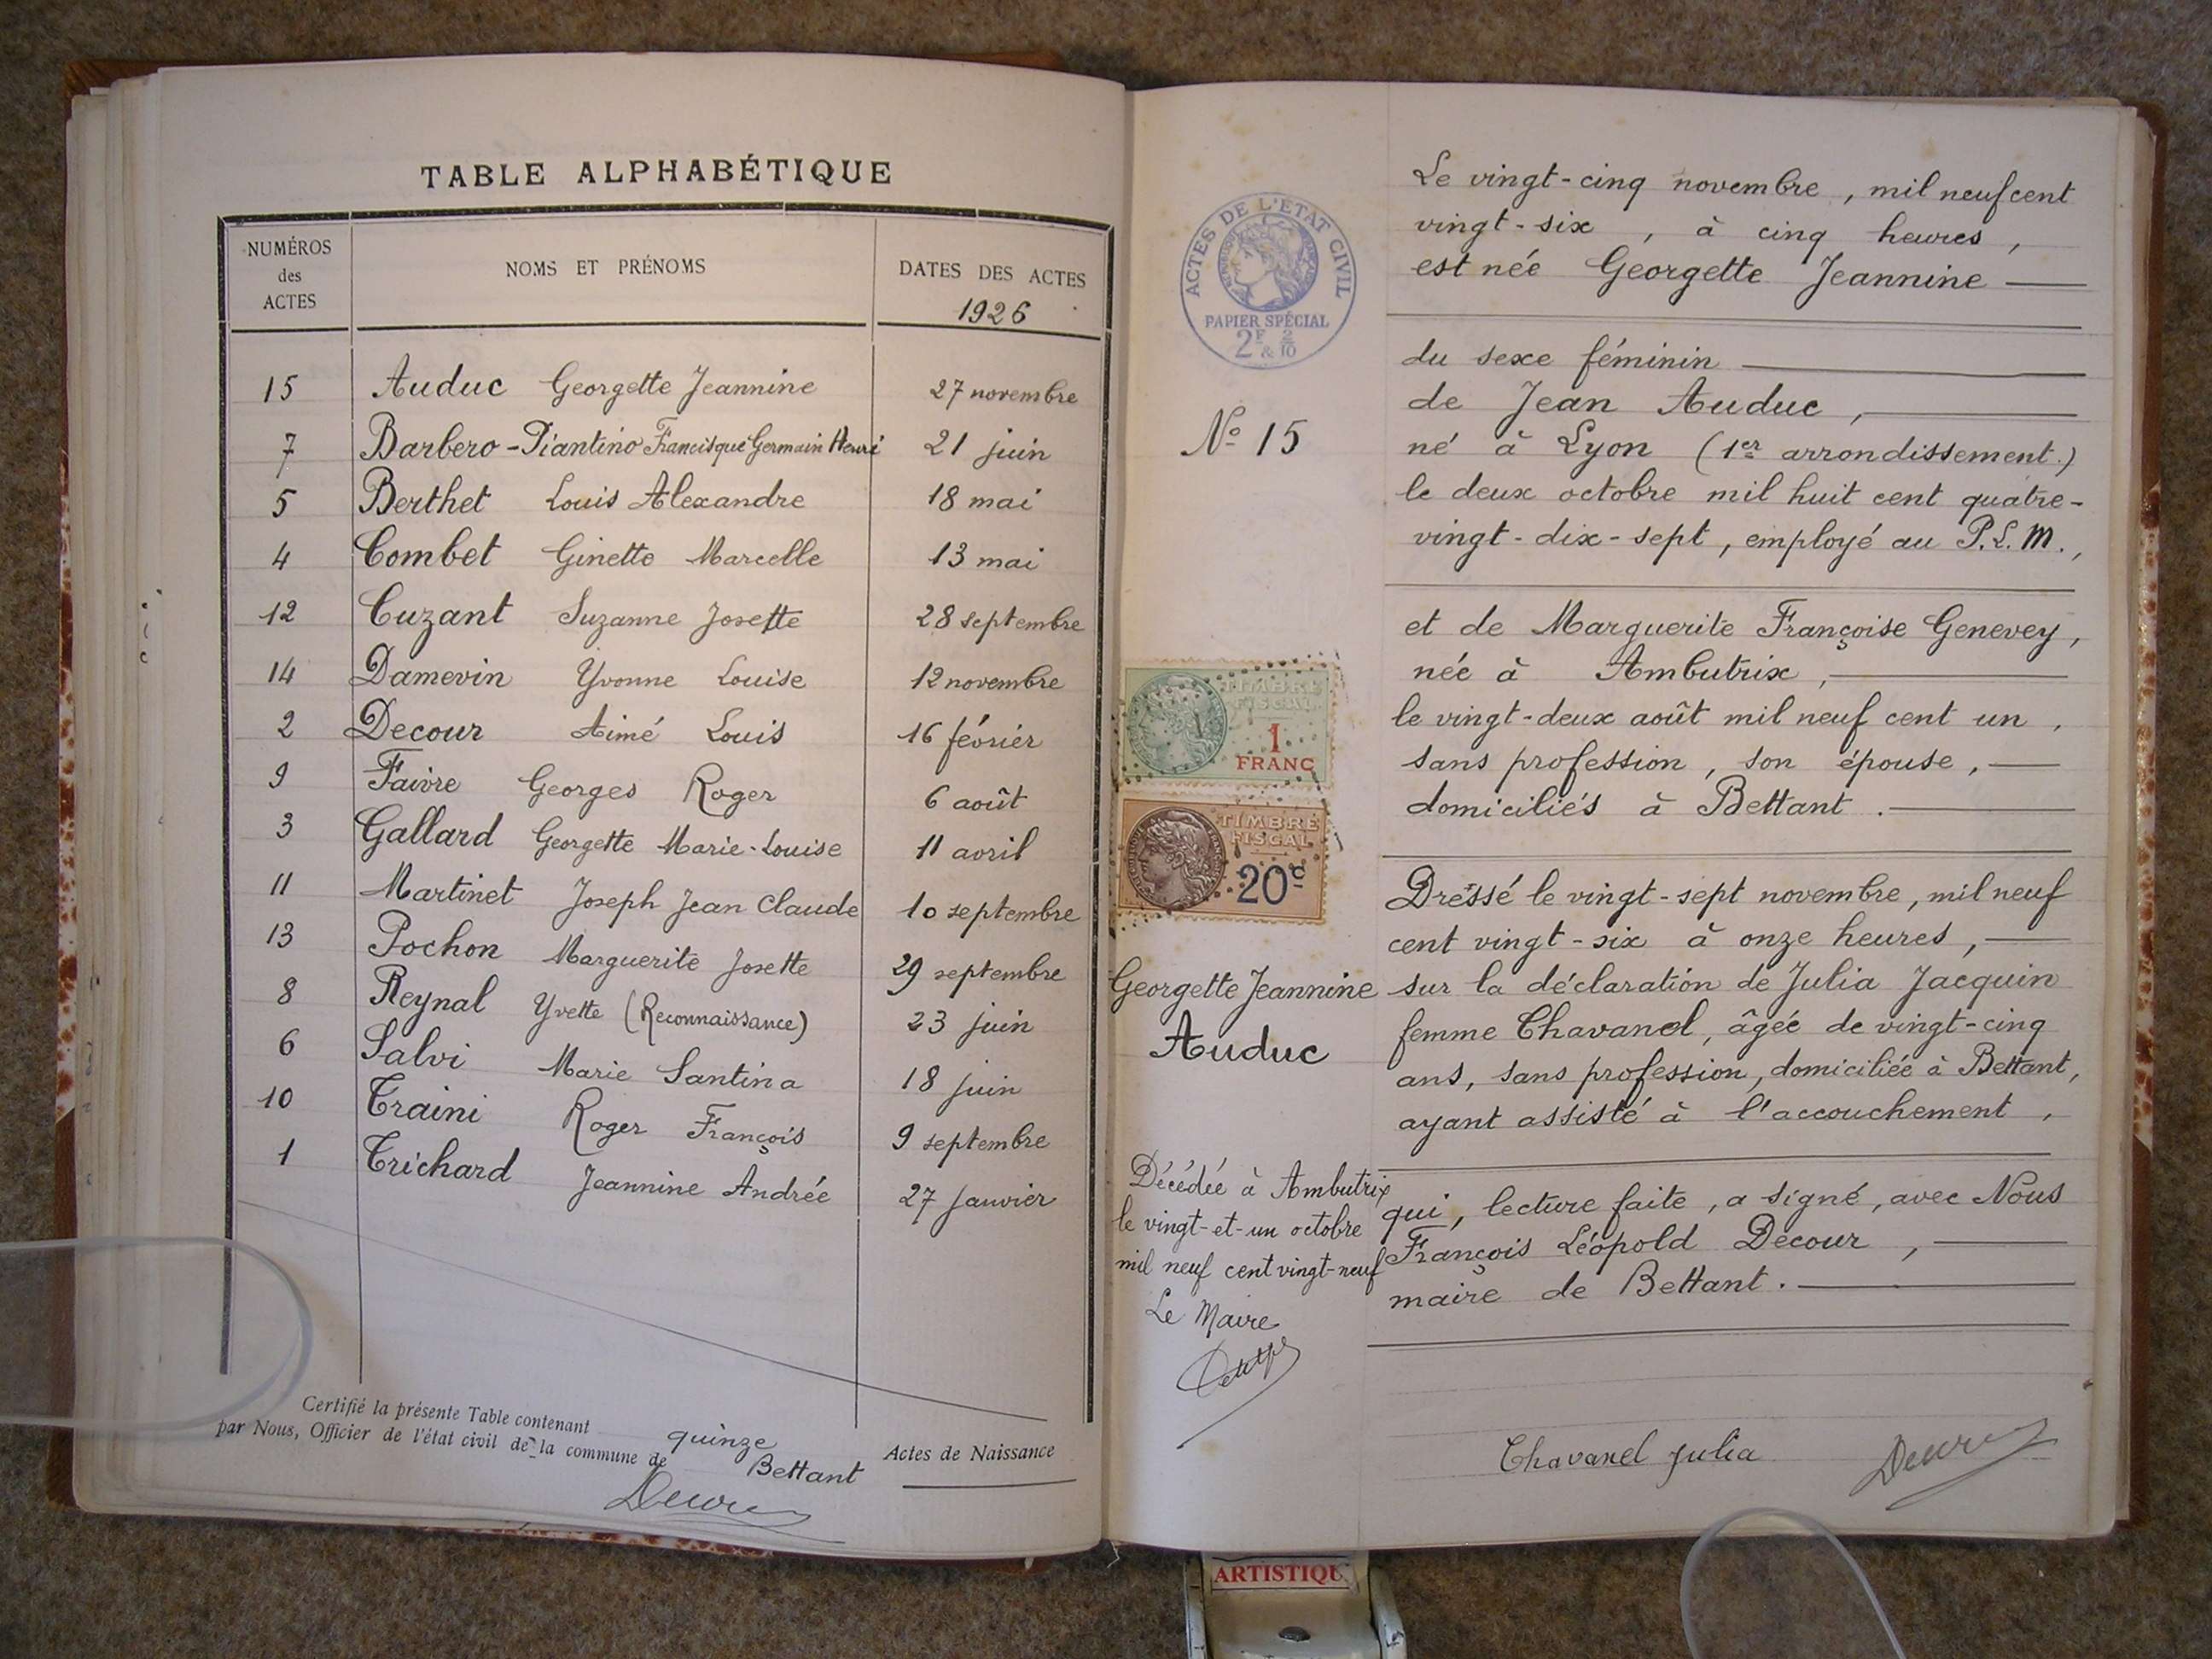 TABLE ALPHABÉTIQUE
NUMÉROS
des
ACTES
NOMS ET PRÉNOMS
DATES DES ACTES
1926
15 Auduc Georgette Jeannine 27 novembre
7 Barbero-Piantino Francisque Germain Henri 21 juin
5 Berthet Louis Alexandre 18 mai
4 Combet Ginette Marcelle 13 mai
12 Cuzant Suzanne Josette 28 septembre
14 Damevin Yvonne Louise 12 novembre
2 Decour Aimé Louis 16 février
9 Faivre Georges Roger 6 août
3 Gallard Georgette Marie-Louise 11 avril
11 Martinet Joseph Jean Claude 10 septembre
13 Pochon Marguerite Josette 29 septembre
8 Reynal Yvette (Reconnaissance) 23 juin
6 Salvi Marie Santina 18 juin
10 Traini Roger François 9 septembre
1 Trichard Jeannine Andrée 27 janvier
Certifié la présente Table contenant quinze Actes de Naissance
par Nous, Officier de l'état civil de la commune de Bettant
ACTES DE L'ÉTAT CIVIL
PAPIER SPÉCIAL
2F & 2/10
No 15
TIMBRE
FISCAL
1
FRANC
TIMBRE
FISCAL
20c
Georgette Jeannine
Auduc
Décédée à Ambutrix
le vingt-et-un octobre
mil neuf cent vingt-neuf
Le Maire
Le vingt-cinq novembre, mil neuf cent
vingt-six, à cinq heures,
est née Georgette Jeannine
du sexe féminin
de Jean Auduc,
né à Lyon (1er arrondissement.)
le deux octobre mil huit cent quatre-
vingt-dix-sept, employé au P.L.M.,
et de Marguerite Françoise Genevey,
née à Ambutrix,
le vingt-deux août mil neuf cent un,
sans profession, son épouse,
domiciliés à Bettant.
Dressé le vingt-sept novembre, mil neuf
cent vingt-six à onze heures,
sur la déclaration de Julia Jacquin
femme Chavanel, âgée de vingt-cinq
ans, sans profession, domiciliée à Bettant,
ayant assisté à l'accouchement,
qui, lecture faite, a signé, avec Nous
François Léopold Decour,
maire de Bettant.
Chavanel Julia
ARTISTIQU